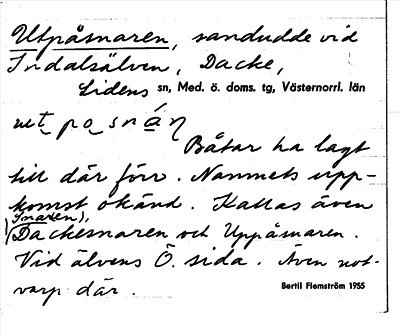 Utpåsnaren, sandudde vid
Indalsälven, Dacke,
Lidens sn, Med. ö. doms. tg, Västernorrl. län
ɯt po snáṇ
Båtar ha lagt
till där förr. Namnets upp-
komst okänd. Kallas även
Snaren),
Dackesnaren och Uppåsnaren.
Vid älvens Ö. sida. Även not-
varp där.
Bertil Flemström 1955